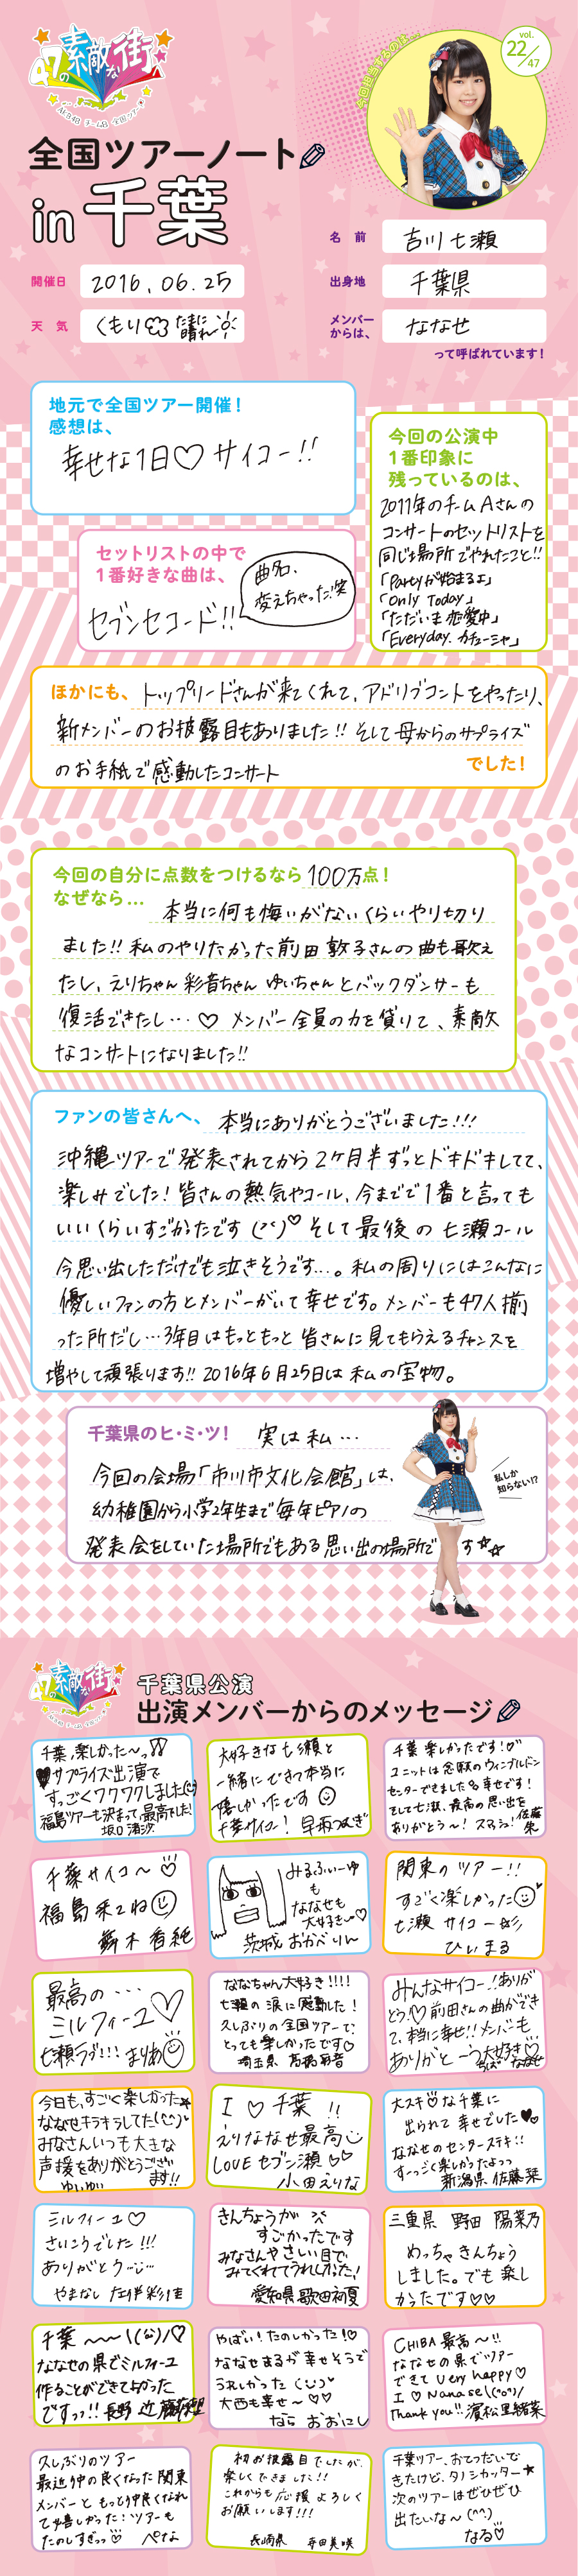 47の素敵な街へ
AKB48 チーム8 全国ツアー
今回担当するのは…
vol.
22/47
全国ツアーノート
in 千葉
名 前
吉川七瀬
開催日
2016.06.25
出身地
千葉県
天 気
くもり たまに晴れ
メンバーからは、
ななせ
って呼ばれています!
地元で全国ツアー開催!
感想は、
幸せな1日♡サイコー!!
今回の公演中
1番印象に
残っているのは、
2011年のチームAさんの
コンサートのセットリストを
同じ場所でやれたこと!!
「Partyが始まるよ」
「Only Today」
「ただいま恋愛中」
「Everyday、カチューシャ」
セットリストの中で
1番好きな曲は、
セブンセコード!!
曲名、
変えちゃった!笑
ほかにも、トップリードさんが来てくれて、アドリブコントをやったり、
新メンバーのお披露目もありました!! そして母からのサプライズ
のお手紙で感動したコンサート
でした!
今回の自分に点数をつけるなら100万点!
なぜなら…
本当に何も悔いがないくらいやり切り
ました!! 私のやりたかった前田敦子さんの曲も歌え
たし、えりちゃん 彩音ちゃん ゆいちゃんとバックダンサーも
復活できたし…♡ メンバー全員の力を貸りて、素敵
なコンサートになりました!!
ファンの皆さんへ、本当にありがとうございました!!!
沖縄ツアーで発表されてから2ヶ月半ずっとドキドキしてて、
楽しみでした!皆さんの熱気やコール、今までで1番と言っても
いいくらいすごかったです(^^)♡そして最後の七瀬コール
今思い出しただけでも泣きそうです…。私の周りにはこんなに
優しいファンの方とメンバーがいて幸せです。メンバーも47人揃
った所だし…3年目はもっともっと皆さんに見てもらえるチャンスを
増やして頑張ります!! 2016年6月25日は私の宝物。
千葉県のヒ・ミ・ツ!
実は私…
今回の会場「市川市文化会館」は、
幼稚園から小学2年生まで毎年ピアノの
発表会をしていた場所でもある思い出の場所です☆☆
私しか
知らない!?
47の素敵な街へ
千葉県公演
出演メンバーからのメッセージ
千葉、楽しかった〜っ
♥サプライズ出演で
すっごくワクワクしました
福島ツアーも決まって、最高でした!
坂口渚沙
大好きな七瀬と
一緒にできて本当に
嬉しかったです
千葉サイコー! 早坂つむぎ
千葉 楽しかったです!♡
ユニットは念願のウィンブルドン
センターできました 幸せです!
そして七瀬、最高の思い出を
ありがとう〜! スマッシュ! 佐藤朱
千葉サイコ〜♡
福島来てね
舞木香純
みるふぃーゆ
も
ななせも
大好き〜♡
茨城 おかべりん
関東のツアー!!
すごく楽しかった
七瀬 サイコー
ひぃまる
最高の...
ミルフィーユ♡
七瀬ラブ!!! まりあ
ななちゃん大好き!!!!
七瀬の涙に感動した!
久しぶりの全国ツアーで、
とっても楽しかったです♡
埼玉県 髙橋彩音
みんなサイコー!ありが
とう!♡前田さんの曲ができ
て、本当に幸せ!! メンバーも
ありがと〜う大好き♡
ちば ななせ
今日も、すごく楽しかった
ななせキラキラしてた(^^)
みなさんいつも大きな
声援をありがとうござい
ます!!
ゆいゆい
I ♡ 千葉 !!
えりななせ最高
LOVE セブン瀬♡♡
小田えりな
大スキ♡な千葉に
出られて 幸せでした♥♥
ななせのセンターステキ!!
すーっごく楽しかったよっっ
新潟県 佐藤栞
ミルフィーユ♡
さいこうでした!!!
ありがとう…
やまなし 左伴彩佳
きんちょうが
すごかったです
みなさんやさしい目で
みてくれててうれしかった!
愛知県 歌田初夏
三重県 野田 陽菜乃
めっちゃきんちょう
しました。でも 楽し
かったです♡♡
千葉〜〜〜\(^^)/♡
ななせの県でミルフィーユ
作ることができてよかった
ですっっ!! 長野 近藤萌恵里
やばい! たのしかった!♡
ななせまるが幸せそうで
うれしかった(^^)
大西も幸せ〜♡♡
なら おおにし
CHIBA 最高〜!!
ななせの県でツアー
できて very happy♡
I ♡ Nanase\(^o^)/
Thank you!! 濵松里緒菜
久しぶりのツアー
最近り仲の良くなった関東
メンバーと もっと仲良くなれ
て嬉しかった! ツアーも
たのしすぎっっ♡ ぺな
初お披露目でしたが、
楽しくできました!!
これからも応援よろしく
お願いします!!!
長崎県
千葉ツアー、おてつだいで
きたけど、タノシカッター★
次のツアーはぜひぜひ
出たいな〜(^^)
なる♡